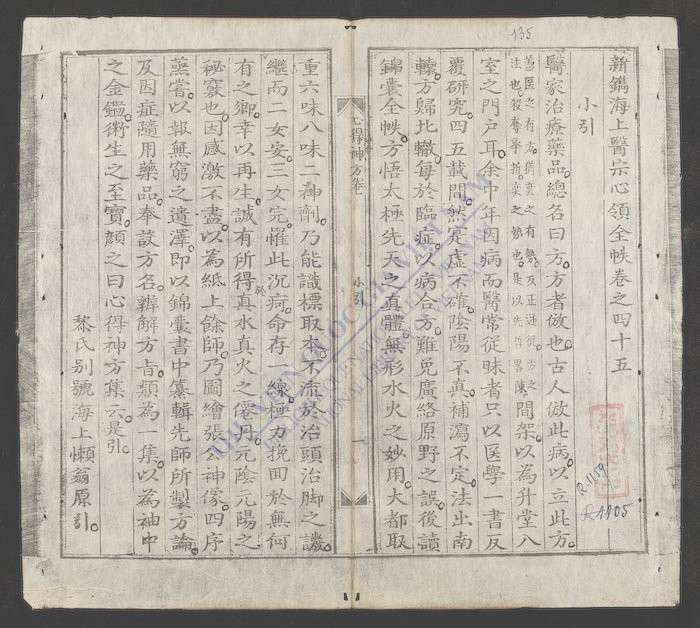 135
新鐫海上醫宗心領全帙卷之四十五
小引
醫家治療藥品總名曰方方者倣也古人倣此病以立此方
蓋医之有方猶奕之有勢反正逆從方之
法也殺奪擊抓奕之勢也是以先哲畧陳
間架以為升堂入
室之門戸耳余中年因病而醫常從昧者只以医學一書反
覆研究四五載間然寔虛不確陰陽不真補瀉不定法出南
轅方歸北轍每於臨症以病合方難免廣絡原野之誤後讀
錦囊全帙方悟太極先天之真體無形水火之妙用大都取
心得神方卷
小引
一
重六味八味二神劑乃能識標取本不流於治頭治脚之譏
繼而二女安三女完罹此沉疴命存一線極力挽回於無何
有之鄉幸以再生誠有所得真水真火之僊丹元陰元陽之
秘竅也因感激不盡以為紙上餘師乃圖繪張公神像四序
蒸嘗以報無窮之遺澤即以錦囊書中纂輯先師所製方論
及因症隨用藥品奉諸方名辨解方旨類為一集以為袖中
之金鑑衛生之至寶顏之曰心得神方集云是引
黎氏别號海上懶翁原引
R.1159
R1105
THƯ VIỆN QUỐC GIA VIỆT NAM
BIBLIOTHEQUE NATIONALE DU VIETNAM
NATIONAL LIBRARY OF VIETNAM